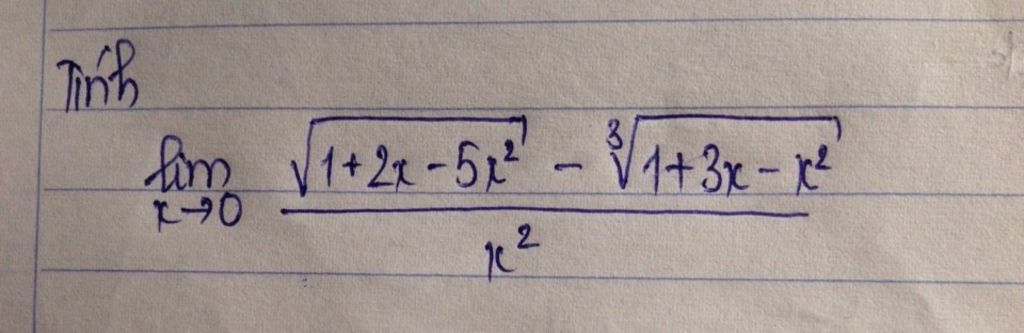 Tính
lim x→0 (√(1+2x-5x²) - ∛(1+3x-x²)) / x²